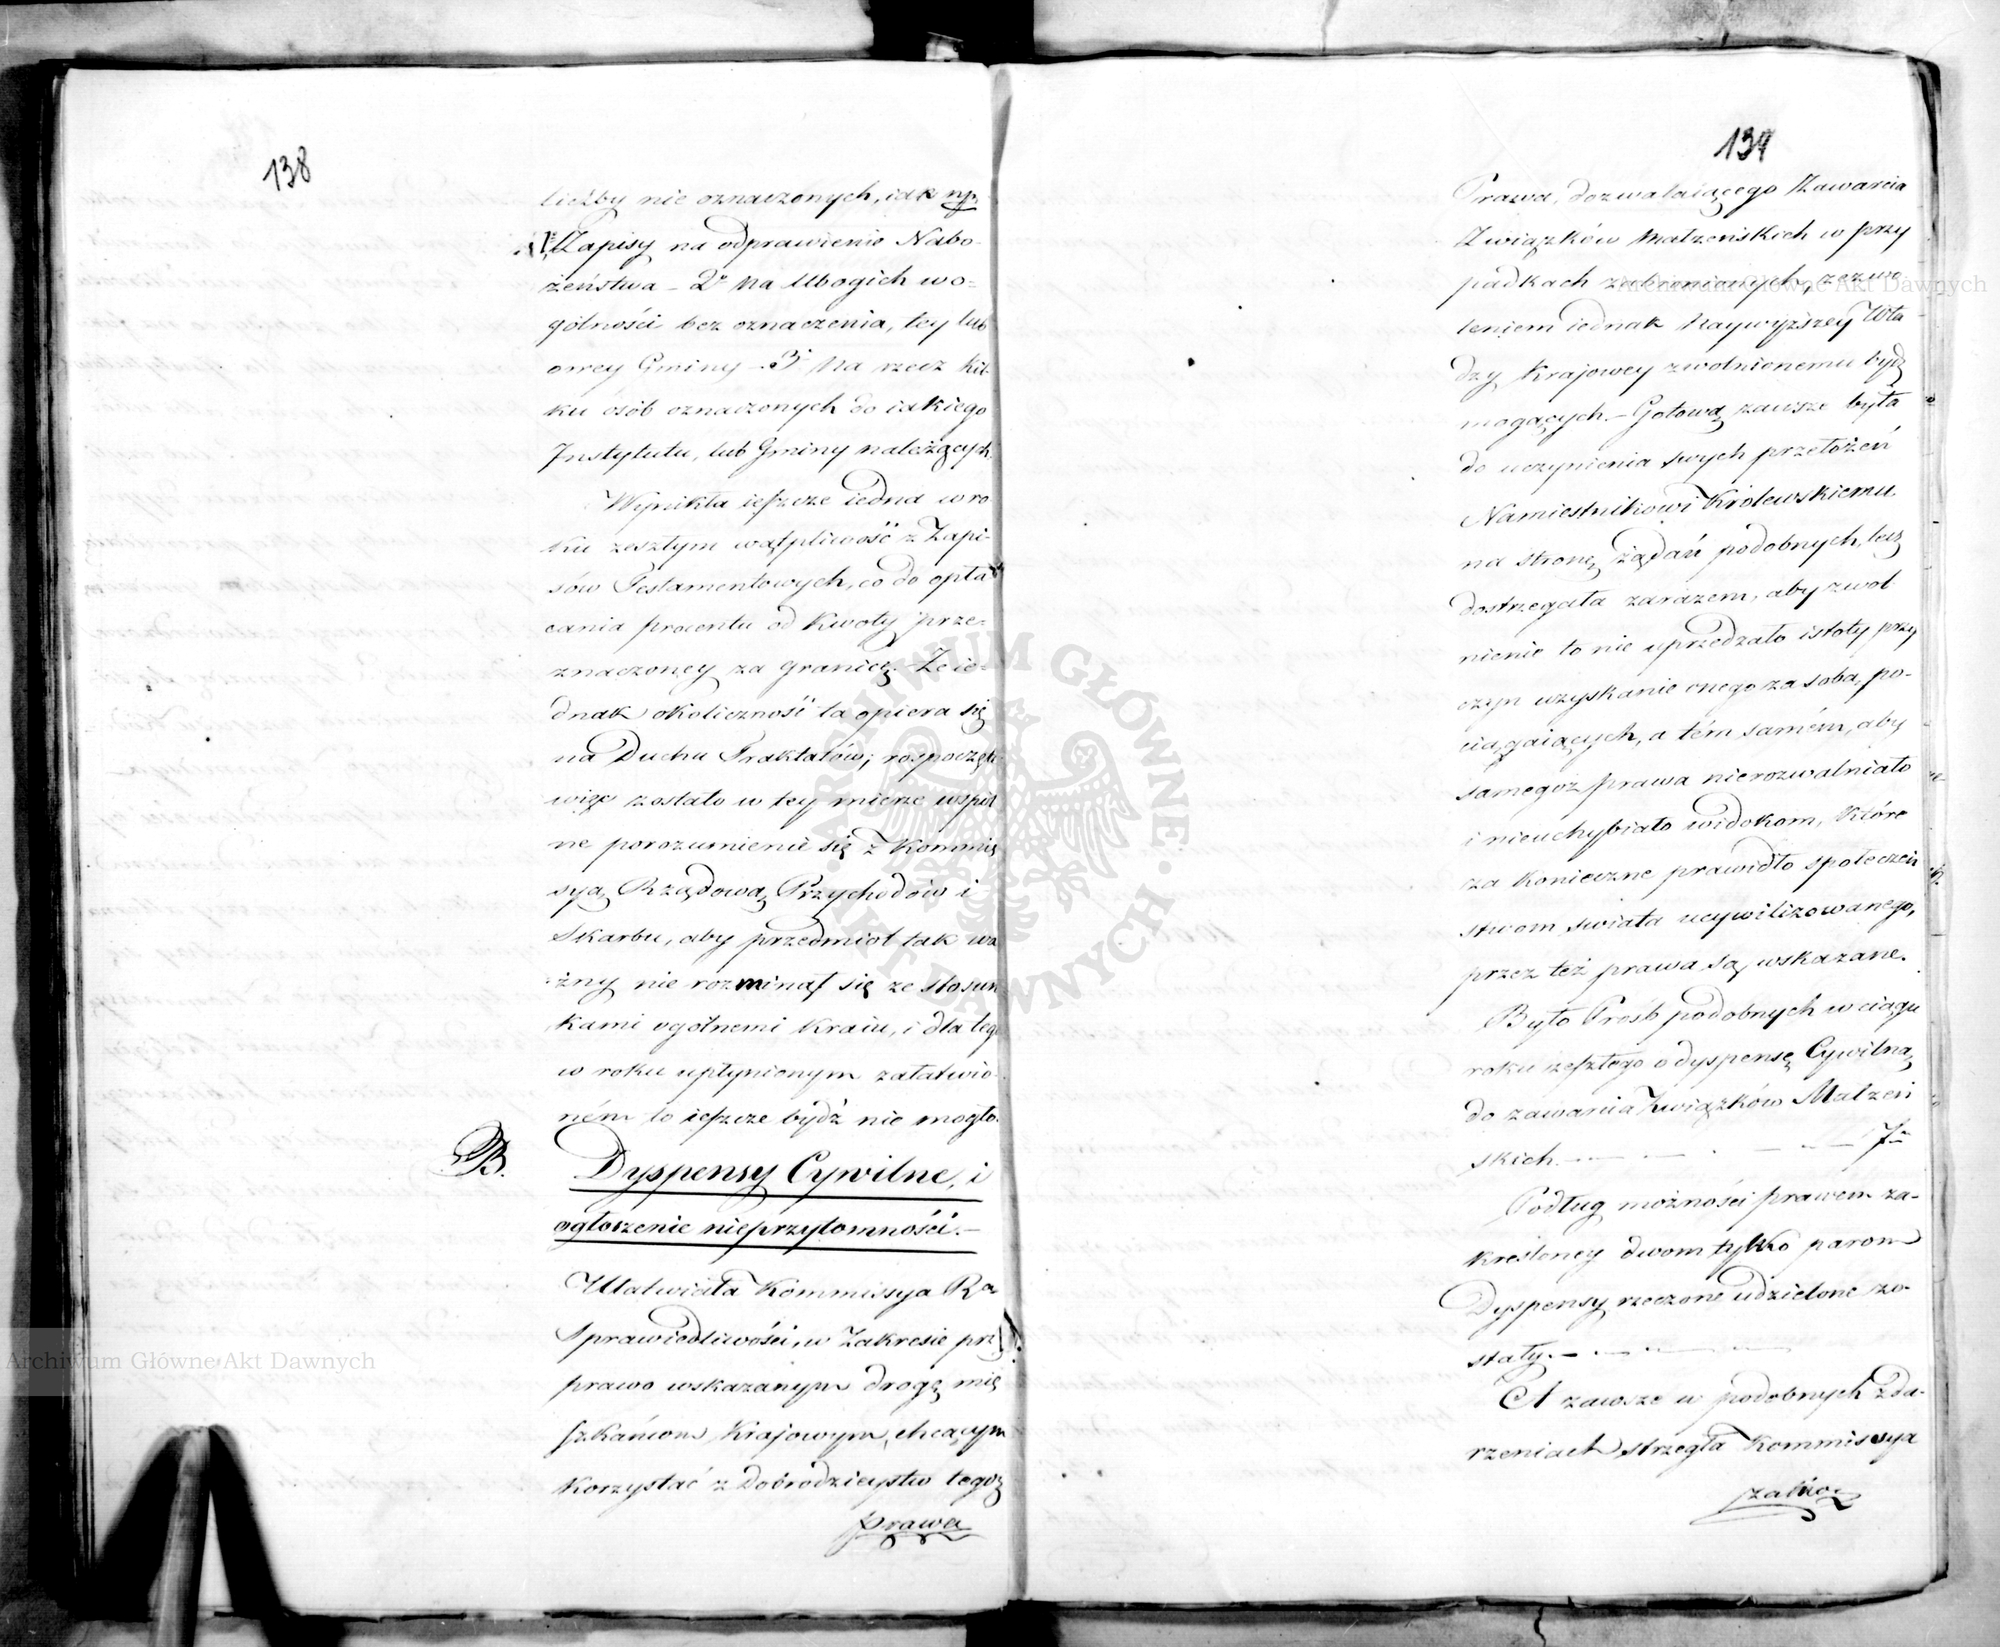 138
liczby nie oznaczonych, iak np.
1º Zapisy na odprawienie Nabo-
żeństwa – 2º Na Ubogich wo-
gólności bez oznaczenia, tey lub
owey Gminy – 3º Na rzecz kil-
ku osób oznaczonych do iakiego
Instytutu, lub Gminy należących.
Wynikła ieszcze iedna w ro-
ku zeszłym wątpliwość z Zapi-
sów Testamentowych, co do opła-
cania procentu od kwoty prze-
znaczoney za granicę. – Że ie-
dnak okoliczność ta opiera się
na Duchu Traktatów; rospoczęte
więc zostało w tey mierze wspól
ne porozumienie się z Kommis
syą Rządową Przychodów i
Skarbu, aby przedmiot tak wa
żny nie rozminął się ze stosun
kami ogólnemi Kraiu, i dla tego
w roku upłynionym załatwio-
ném to ieszcze bydź nie mogło.
B. Dyspensy Cywilne, i
ogłoszenie nieprzytomności. –
Ułatwiała Kommissya Rza
Sprawiedliwości, w Zakresie prz
prawo wskazanym drogę mie
szkańcom Krajowym, chcącym
korzystać z Dobrodzieystw tegoż
prawa
139
Prawa, dozwalaiącego Zawarcia
Związków Małżeńskich w przy
padkach zabronionych, zezwo
leniem iednak Naywyższey Wła
dzy Krajowey zwolnionemu bydź
mogących. – Gotową zawsze była
do uczynienia swych przełożeń
Namiestnikowi Królewskiemu
na stronę żądań podobnych, lecz
dostrzegała zarazem, aby zwol
nienie to nie uprzedzało istoty przy
czyn uzyskanie onego za sobą po-
ciągaiących, a tém samém, aby
samegoż prawa nierozwalniało
i nieuchybiało widokom, które
za konieczne prawidło społeczeń
stwom świata ucywilizowanego,
przez też prawa są wskazane.
Było Próśb podobnych w ciągu
roku zeszłego o dyspensę Cywilną
do zawarcia Związków Małżeń
skich. – – – – 7.
Podług możności prawem za-
kreśloney dwom tylko parom
Dyspensy rzeczone udzielone zo-
stały. – – – –
A zawsze w podobnych zda-
rzeniach strzegła Kommissya
Archiwum Główne Akt Dawnych
Archiwum Główne Akt Dawnych
ARCHIWUM GŁÓWNE AKT DAWNYCH